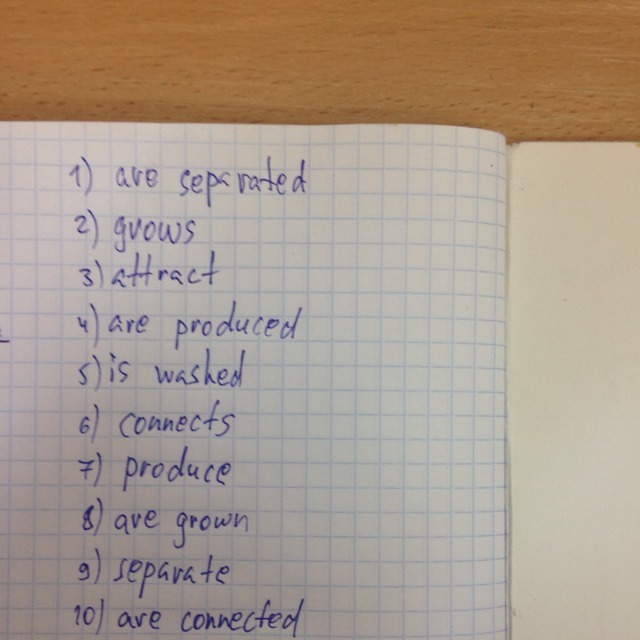 1) are separated
2) grows
3) attract
4) are produced
5) is washed
6) connects
7) produce
8) are grown
9) separate
10) are connected